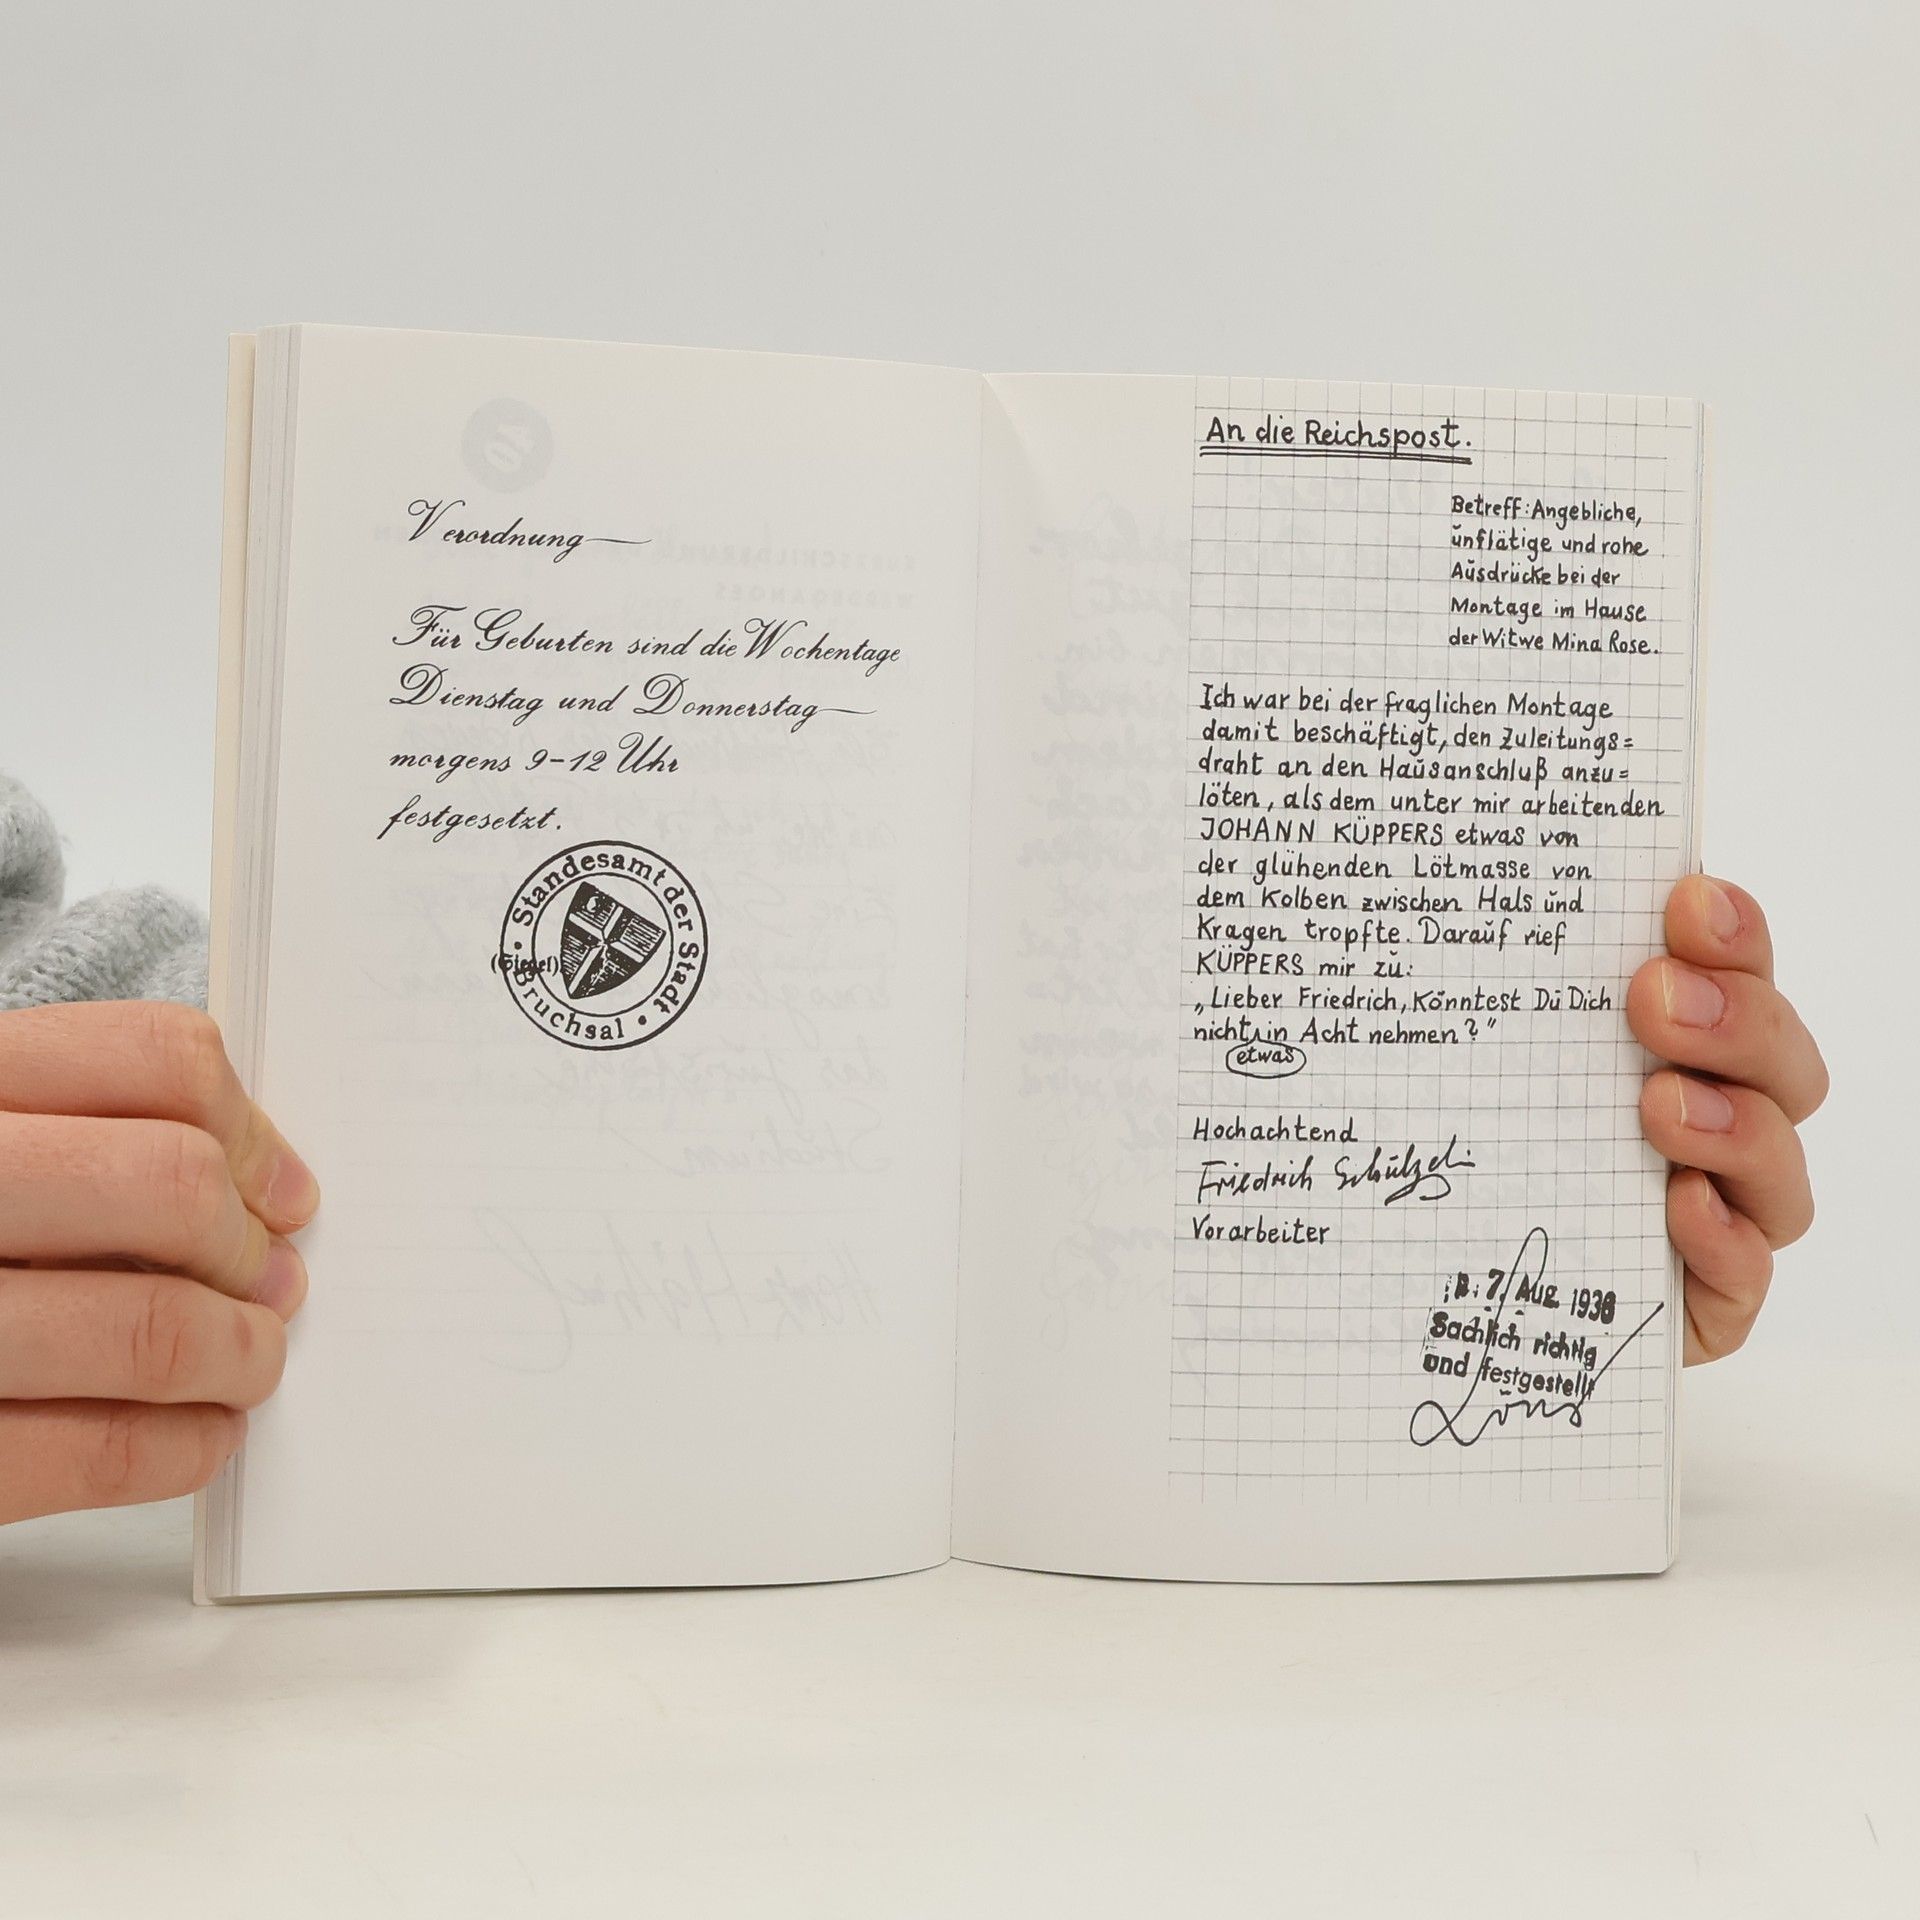 Verordnung
Für Geburten sind die Wochentage
Dienstag und Donnerstag
morgens 9-12 Uhr
festgesetzt.
Standesamt der Stadt
• Bruchsal •
(Siegel)
An die Reichspost.
Betreff: Angebliche,
unflätige und rohe
Ausdrücke bei der
Montage im Hause
der Witwe Mina Rose.
Ich war bei der fraglichen Montage
damit beschäftigt, den Zuleitungs=
draht an den Hausanschluß anzu=
löten, als dem unter mir arbeitenden
JOHANN KÜPPERS etwas von
der glühenden Lötmasse von
dem Kolben zwischen Hals und
Kragen tropfte. Darauf rief
KÜPPERS mir zu:
„Lieber Friedrich, könntest Du Dich
nicht in Acht nehmen?"
etwas
Hochachtend
Friedrich
Vorarbeiter
7. Aug. 1938
Sachlich richtig
und festgestellt
Löns